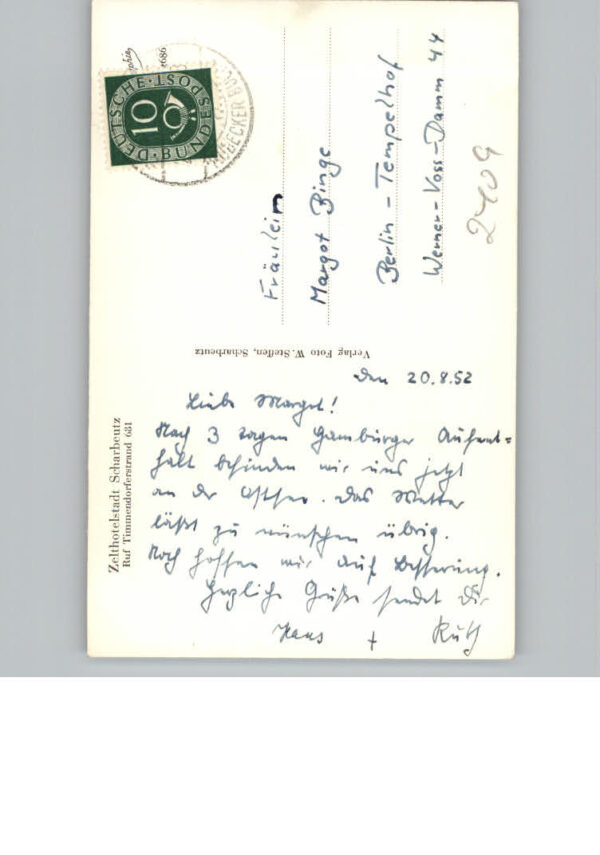 DEUTSCHE · BUNDESPOST
10
LÜBECKER BUCHT
Fräulein
Margot Binge
Berlin - Tempelhof
Werner-Voss-Damm 44
2409
Verlag Foto W. Steffen, Scharbeutz
Zelthotelstadt Scharbeutz
Ruf Timmendorferstrand 681
den 20.8.52
Liebe Margot!
Nach 3 tagen Hamburger Aufent=
halt befinden wir uns jetzt
an der Ostsee. Das Wetter
läßt zu wünschen übrig.
Noch hoffen wir auf Besserung.
Herzliche Grüße sendet Dir
Hans + Ruth